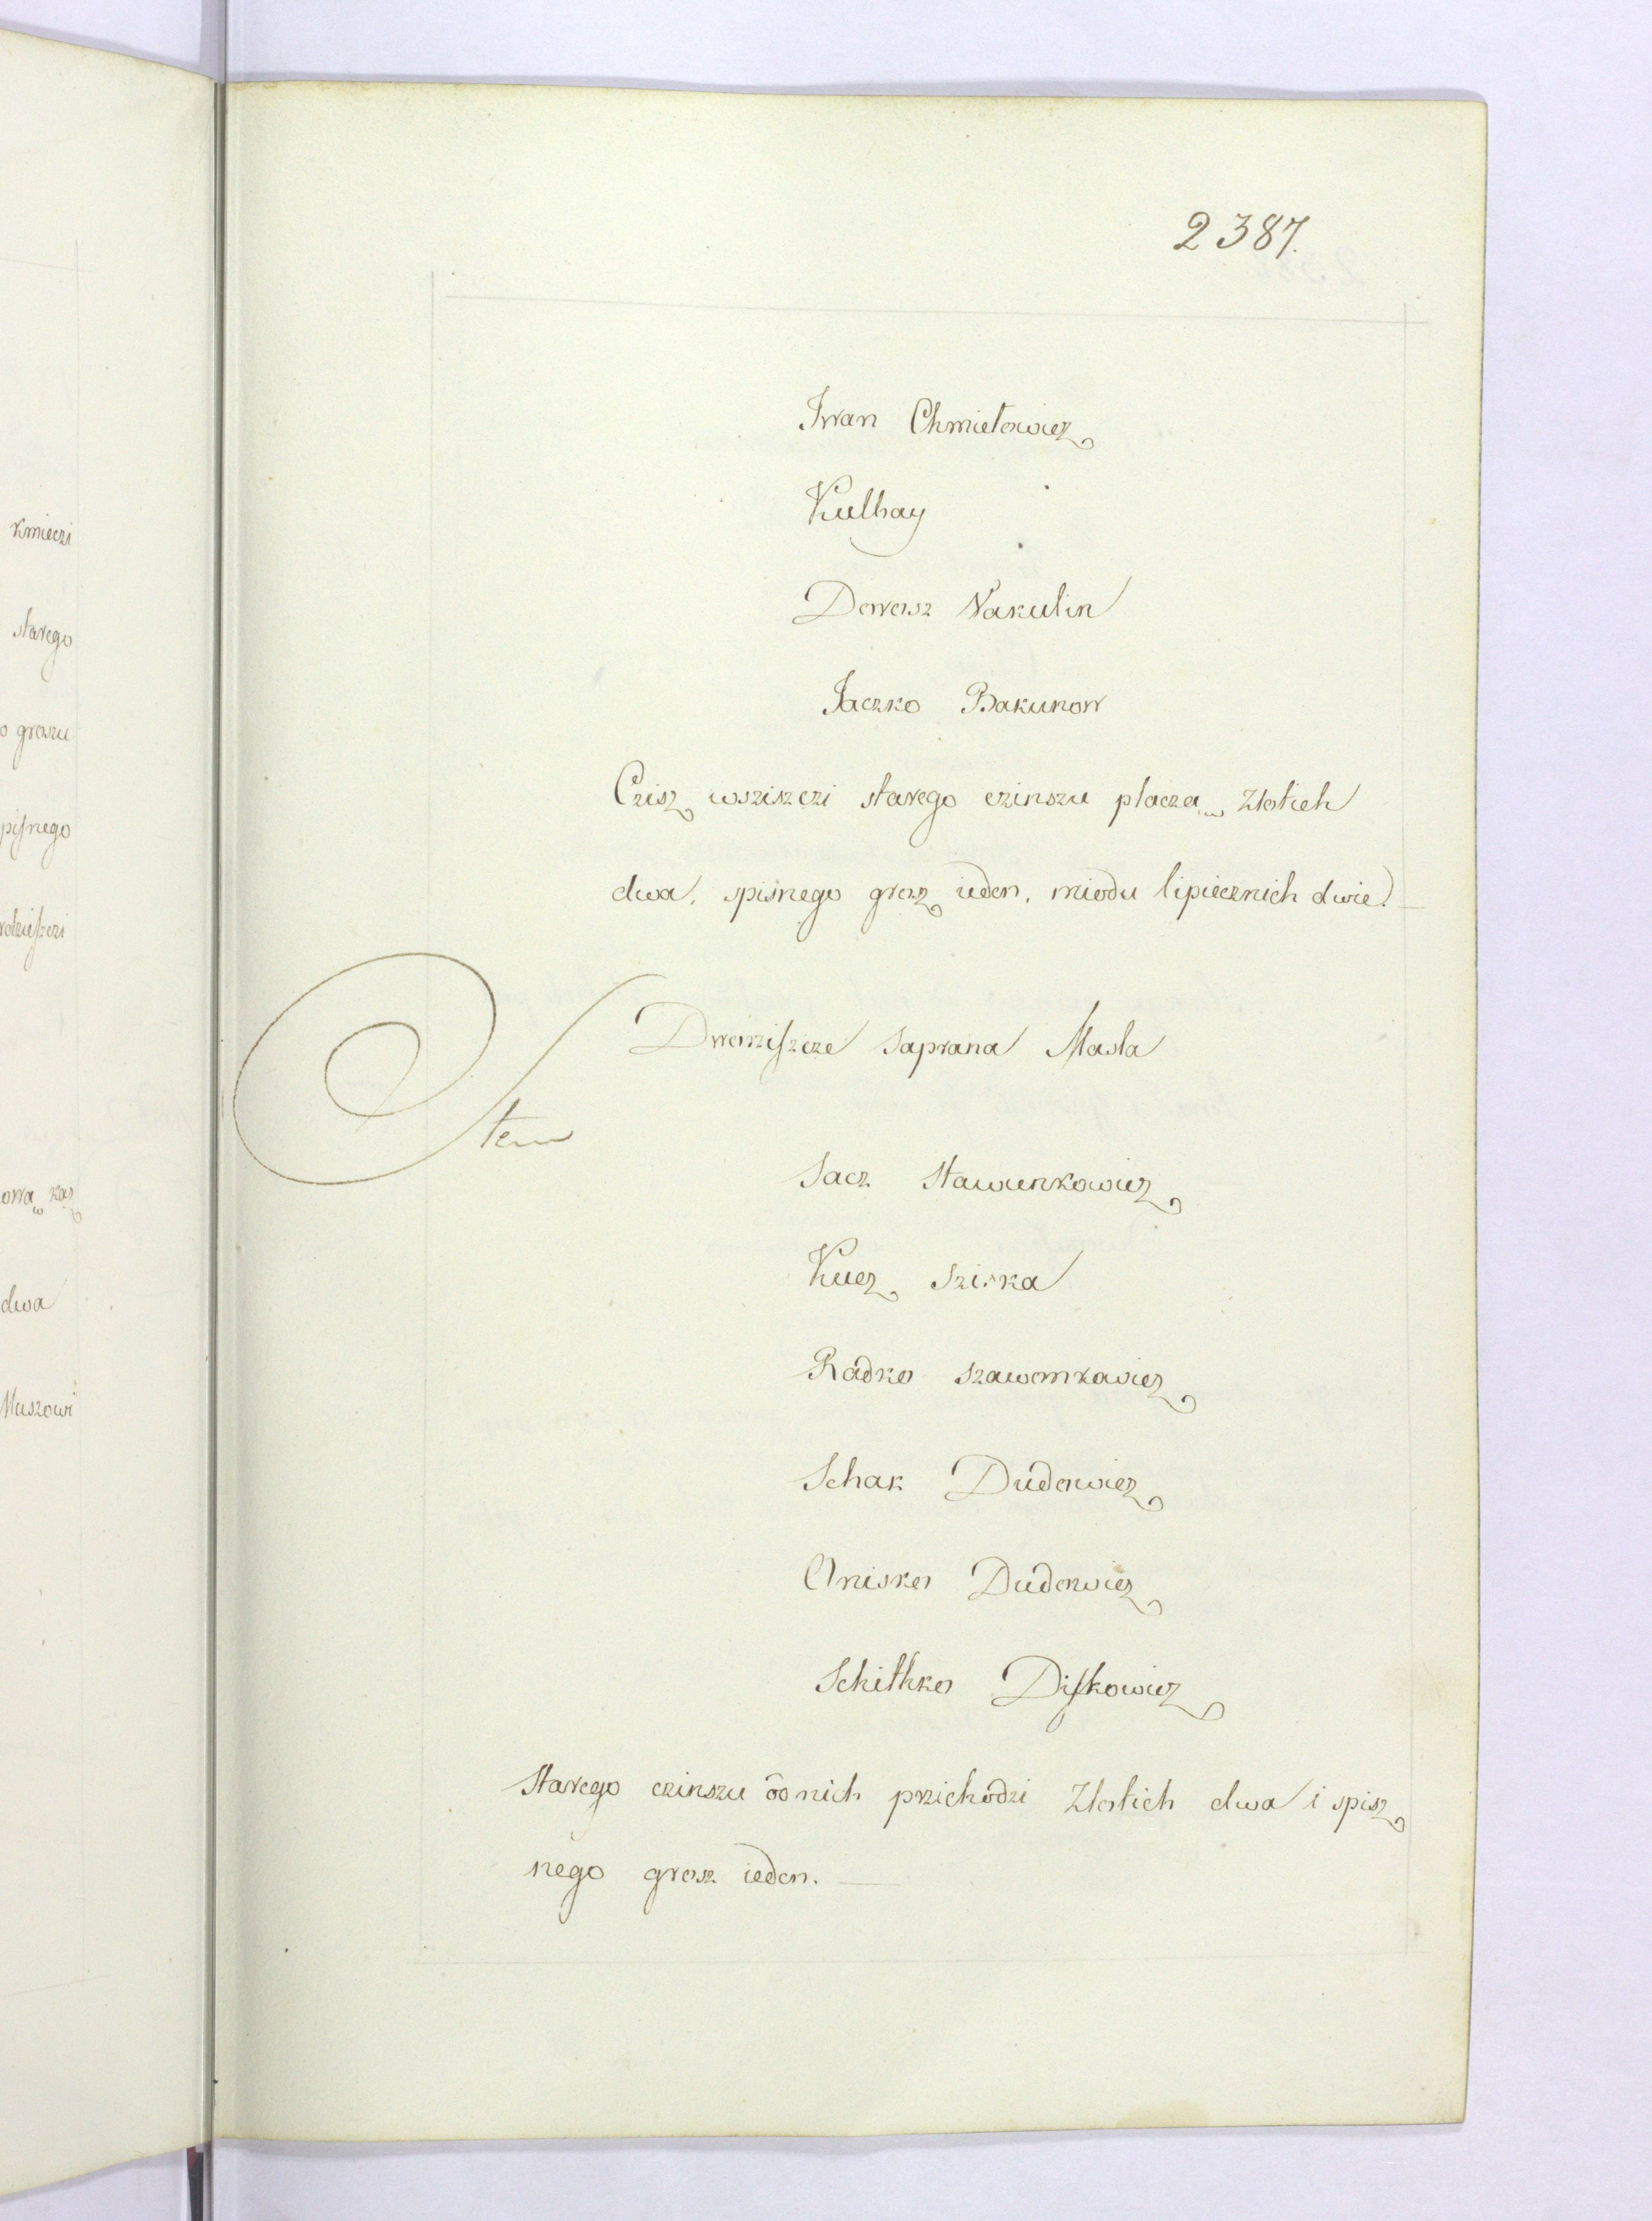 kmieczi
starego
o groszu
pisnego
dwa
2387.
Iwan Chmielowicz
Kulhay
Dowosz Nakulin
Jaczko Bakunow
Czisz wsziszczi starego czinszu płacza Złotich
dwa, spisnego grosz ieden, miodu lipiecznich dwie.
Item
Dworziszcze Saprana Masla
Sacz Stawunkowicz
Kucz Sziska
Radko Szawomkawicz
Schak Dudowicz
Onisko Dudowicz
Schithko Diskowicz
Starego czinszu od nich przichodzi Złotich dwa i spisz
nego grosz ieden.